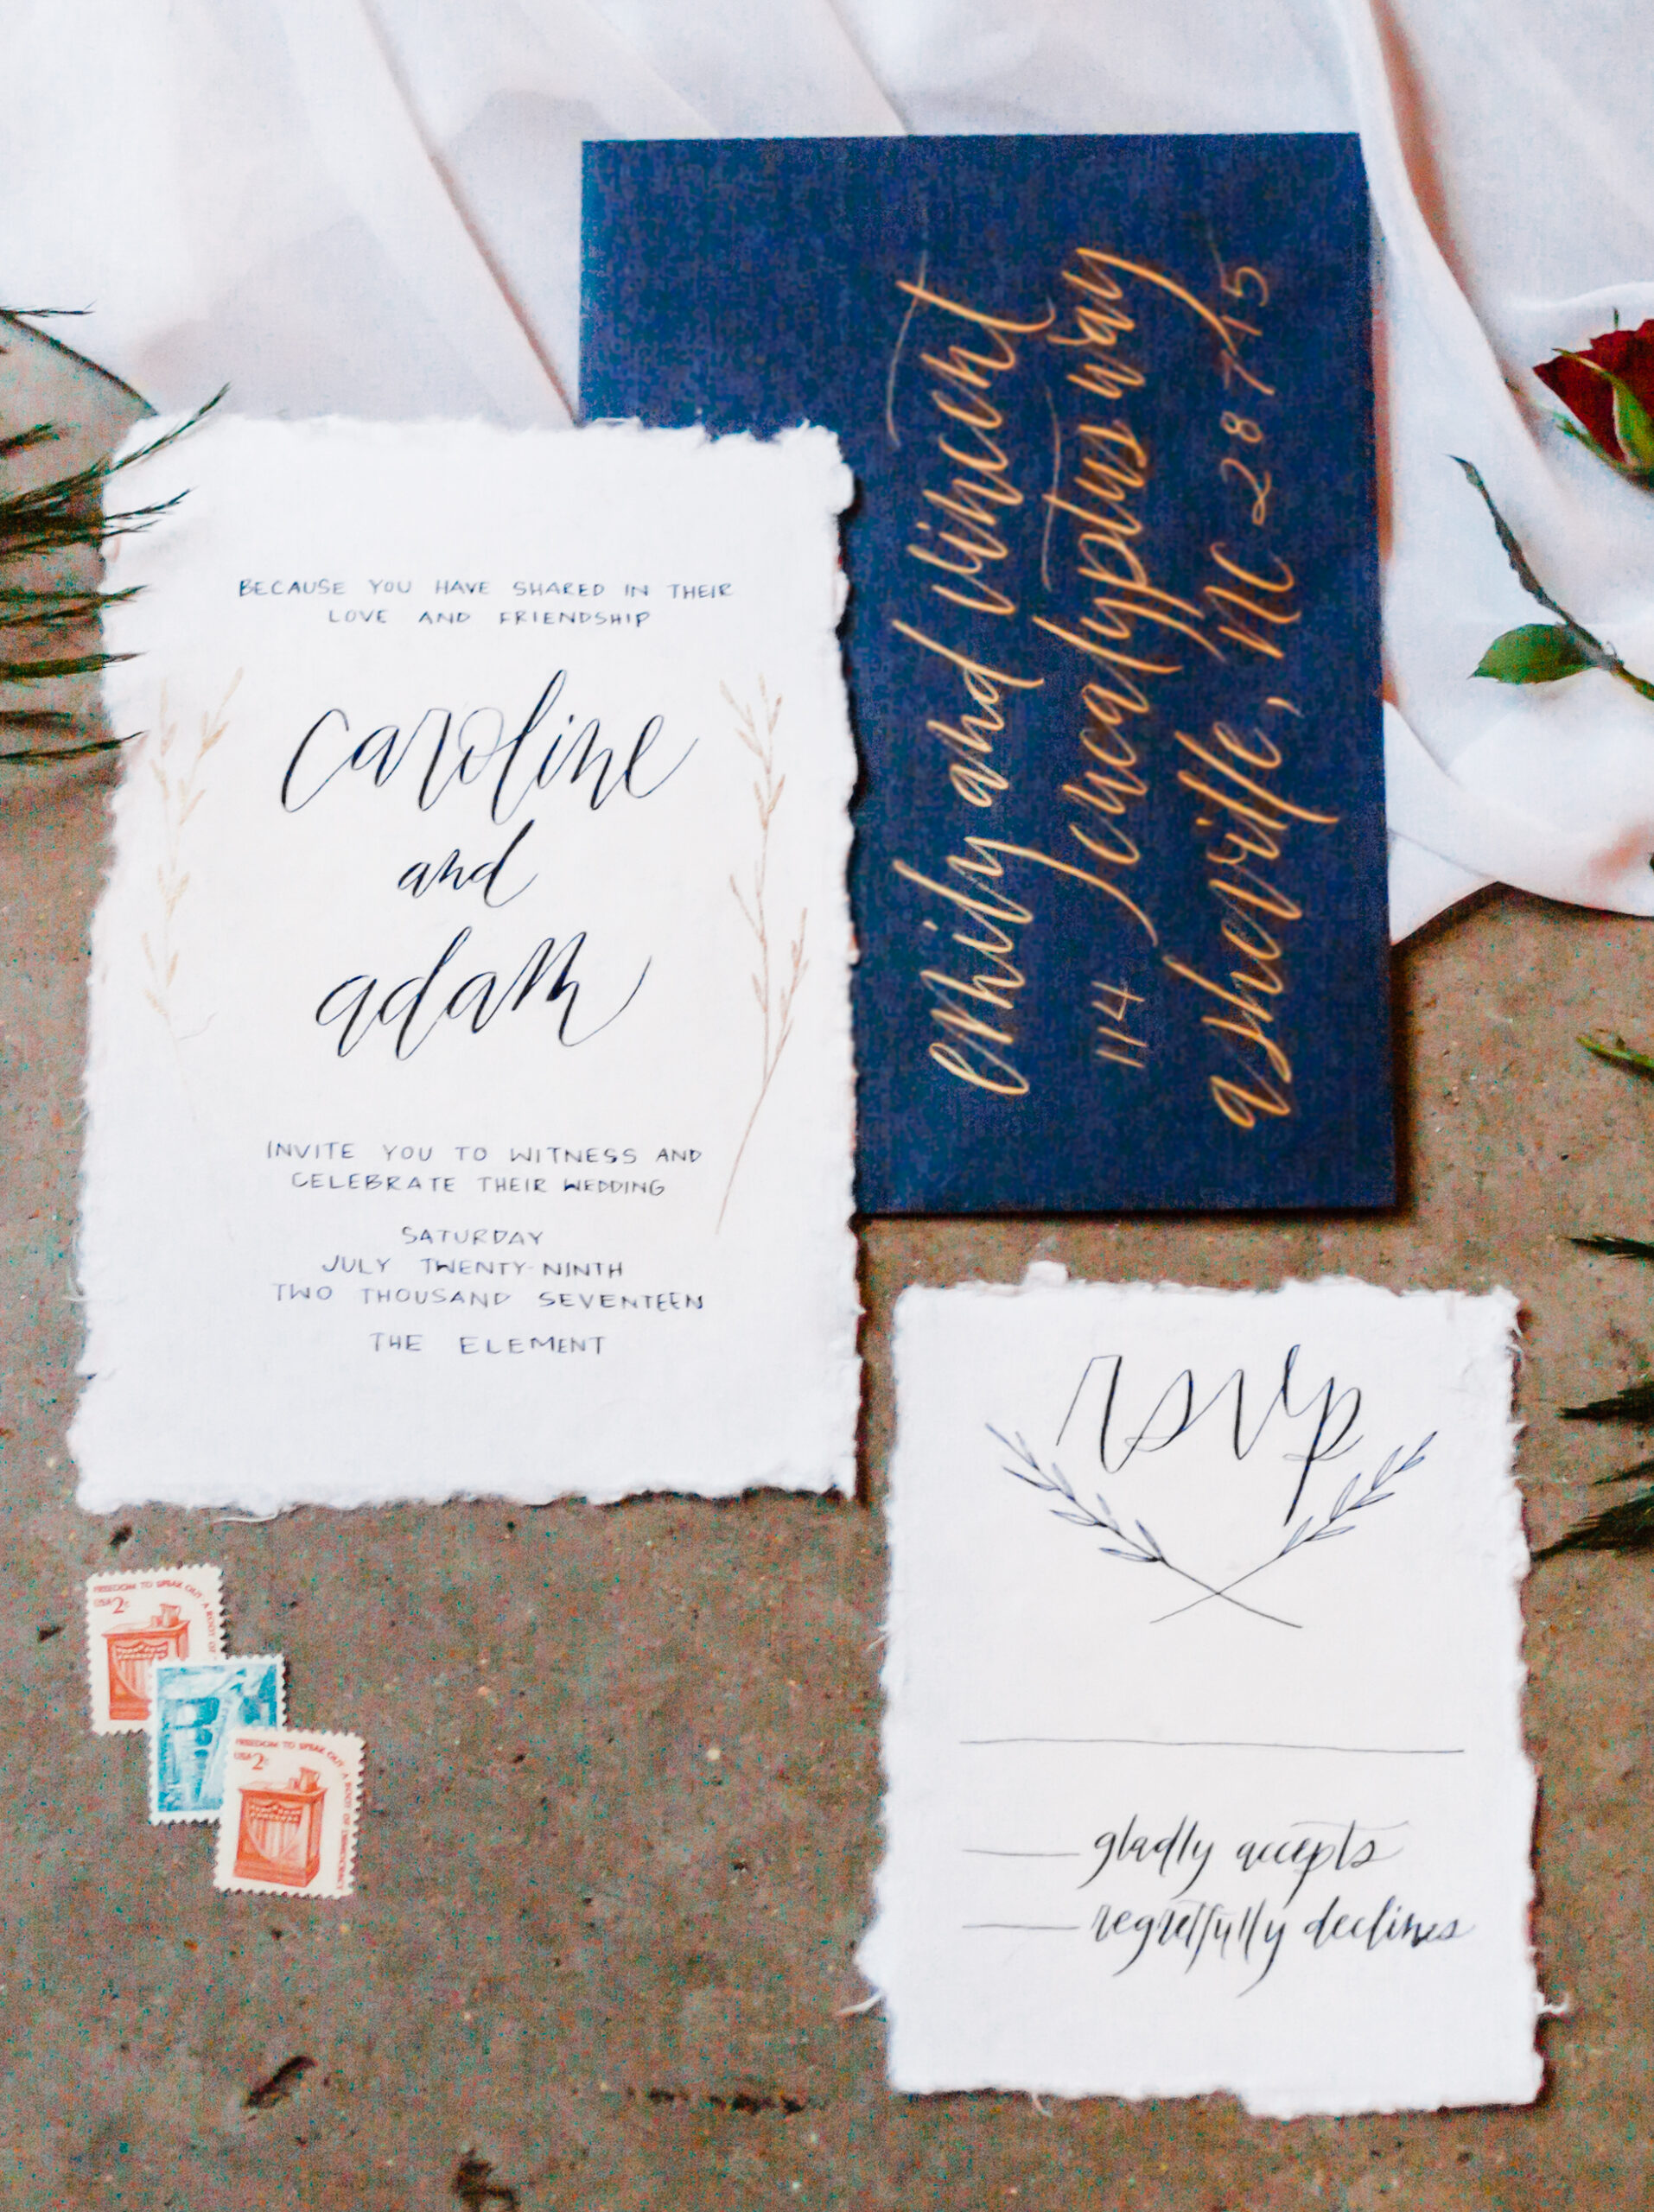 BECAUSE YOU HAVE SHARED IN THEIR
LOVE AND FRIENDSHIP
caroline
and
adam
INVITE YOU TO WITNESS AND
CELEBRATE THEIR WEDDING
SATURDAY
JULY TWENTY-NINTH
TWO THOUSAND SEVENTEEN
THE ELEMENT
emily and vincent
114 eucalyptus way
asheville, NC 28745
rsvp
gladly accepts
regretfully declines
FREEDOM TO SPEAK OUT A ROOT OF
USA 2c
FREEDOM TO SPEAK OUT A ROOT OF DEMOCRACY
USA 2c